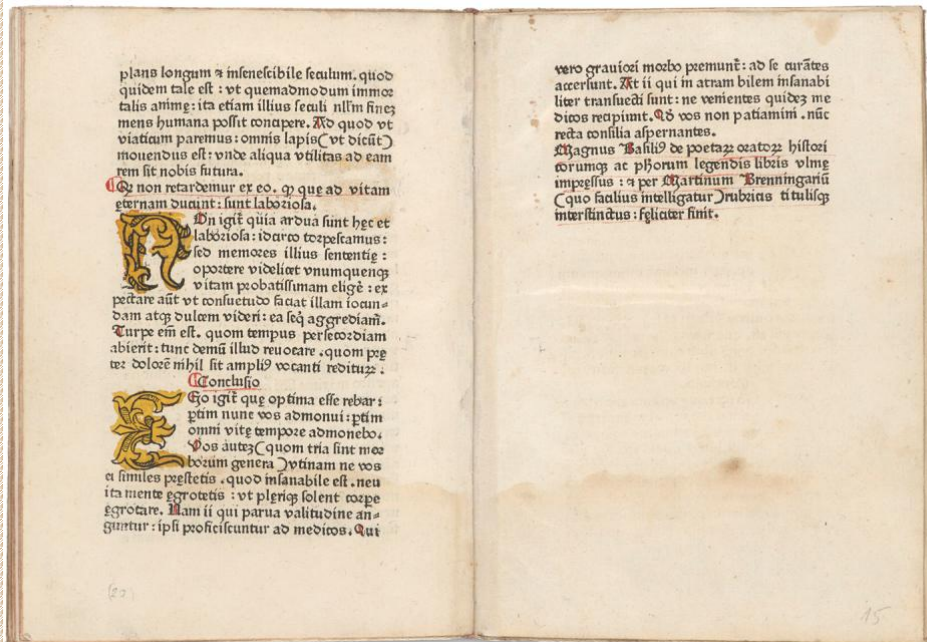 plans longum ⁊ insenescibile seculum. quod
quidem tale est : vt quemadmodum immor
talis animę: ita etiam illius seculi nll'm fineʒ
mens humana possit concipere. Ad quod vt
viaticum paremus: omnis lapis (vt dicūt)
mouendus est: vnde aliqua vtilitas ad eam
rem sit nobis futura.
Qꝫ non retardemur ex eo. ꝙ que ad vitam
ęternam ducunt: sunt laboriosa.
Non igit̃ quia ardua sunt hęc et
laboriosa: idcirco torpescamus:
sed memores illius sententię :
oportere videlicet vnumquenqꝫ
vitam probatissimam eligē : ex
pectare aūt vt consuetudo faciat illam iocun-
dam atqꝫ dulcem videri: ea seqͥ aggrediam̃.
Turpe em̄ est. quom tempus per secordiam
abierit: tunc demū illud reuocare. quom prę
ter dolorē nihil sit ampliꝰ vocanti redituꝝ.
Conclusio
Ego igit̃ que optima esse rebar:
ꝑtim nunc vos admonui: ꝑtim
omni vitę tempore admonebo.
Vos auteʒ (quom tria sint mor
borum genera) vtinam ne vos
ei similes pręstetis. quod insanabile est. neu
ita mente ęgrotetis : vt pleriqꝫ solent corpe
ęgrotare. Nam ii qui parua valitudine an-
guntur: ipsi proficiscuntur ad medicos. Qui
(20)
vero grauiori morbo premunt̃: ad se curātes
accersunt. At ii qui in atram bilem insanabi
liter transuecti sunt: ne venientes quideʒ me
dicos recipiunt. Qd̓ vos non patiamini. nūc
recta consilia aspernantes.
Magnus Basiliꝰ de poetaꝝ oratoꝝ histori
corumqꝫ ac ph̓orum legendis libris vlmę
impressus : ⁊ per Martinum Brenningariū
(quo facilius intelligatur) rubricis titulisqꝫ
interstinctus: fęliciter finit.
15